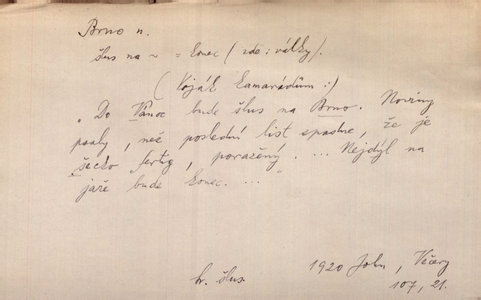 Brno n.
šlus na ~ = konec (zde: války).
(Voják kamarádům:)
„Do Vánoc bude šlus na Brno. Noviny
psaly, než poslední list spadne, že je
šecko fertig, poražený. ... Nejdýl na
jaře bude konec. ..."
1920 John, Večery
sv. šlus. 107, 21.